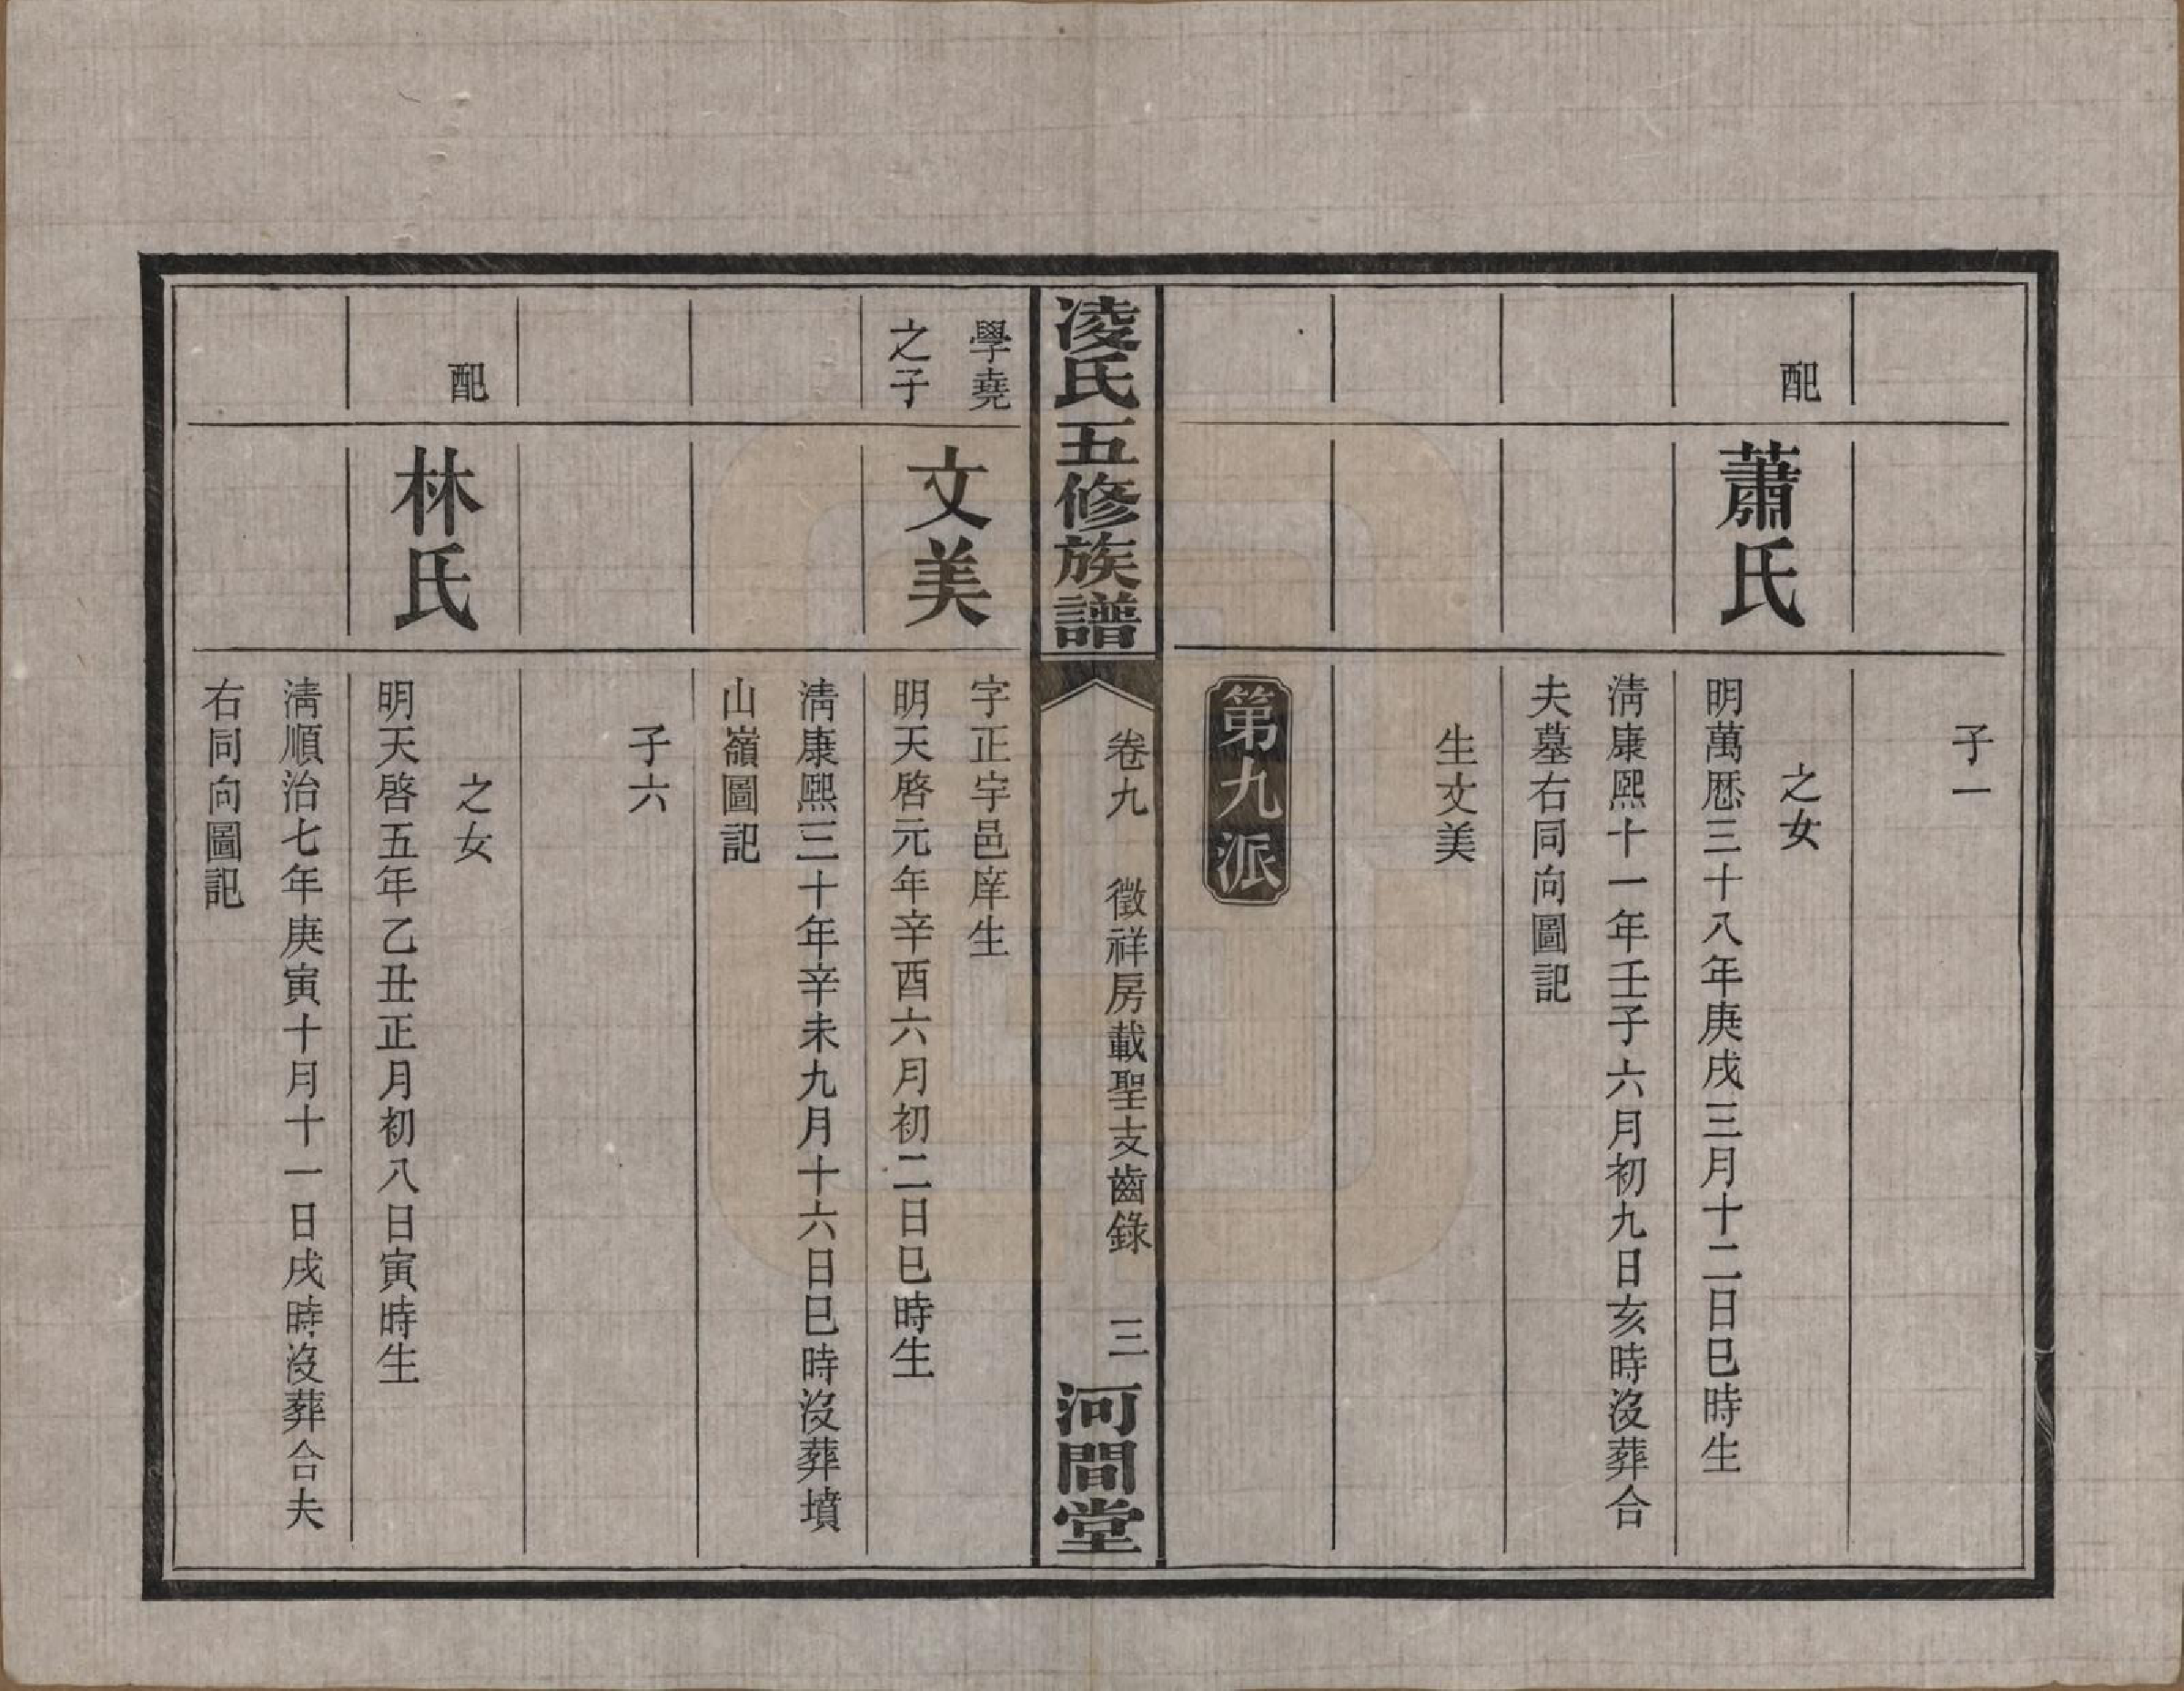 子一
配
蕭氏
之女
明萬厯三十八年庚戌三月十二日巳時生
淸康熙十一年壬子六月初九日亥時沒葬合
夫墓右同向圖記
生文美
第九派
凌氏五修族譜
卷九 徵祥房載聖支齒錄 三
河間堂
學堯
之子
文美
字正宇邑庠生
明天啓元年辛酉六月初二日巳時生
淸康熙三十年辛未九月十六日巳時沒葬墳
山嶺圖記
子六
配
林氏
之女
明天啓五年乙丑正月初八日寅時生
淸順治七年庚寅十月十一日戌時沒葬合夫
右同向圖記